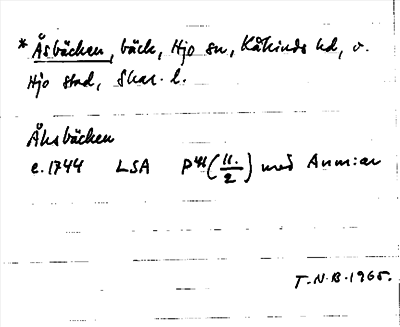 * Åsbäcken, bäck, Hjo sn, Kåkinds hd, o.
Hjo stad, Skar. l.
Åhsbäcken
c. 1744 LSA P⁴¹(11./2) med Anm:ar
T.N.B. 1965.